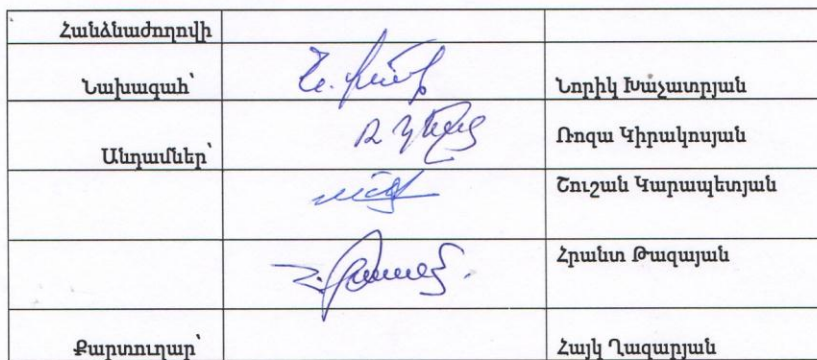 Հանձնաժողովի
Նախագահ՝ Նորիկ Խաչատրյան
Անդամներ՝ Ռոզա Կիրակոսյան
Շուշան Կարապետյան
Հրանտ Թազայան
Քարտուղար՝ Հայկ Ղազարյան